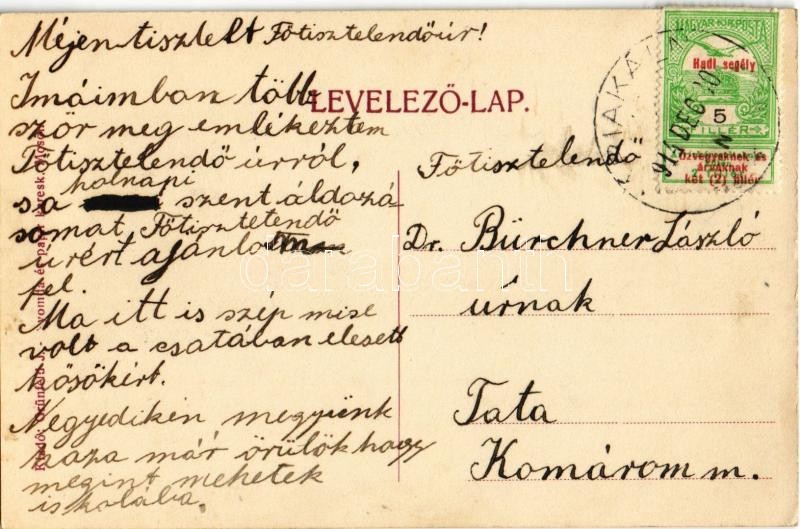 Méjen tisztelt Főtisztelendőúr!
Imáimban több
ször meg emlékeztem
Főtisztelendő úrról,
holnapi
s a szent áldozá
somat Főtisztelendő
úrért ajánlom
fel.
Ma itt is szép mise
volt a csatában elesett
hősökért.
Negyedikén megyünk
haza már örülök hogy
megint mehetek
iskolába.
LEVELEZŐ-LAP.
Főtisztelendő
Dr. Bürchner László
úrnak
Tata
Komárom m.
MAGYAR KIR. POSTA
Hadi segély
5
FILLÉR
Özvegyeknek és
árváknak
két (2) fillér
914 DEC 10
darabanth